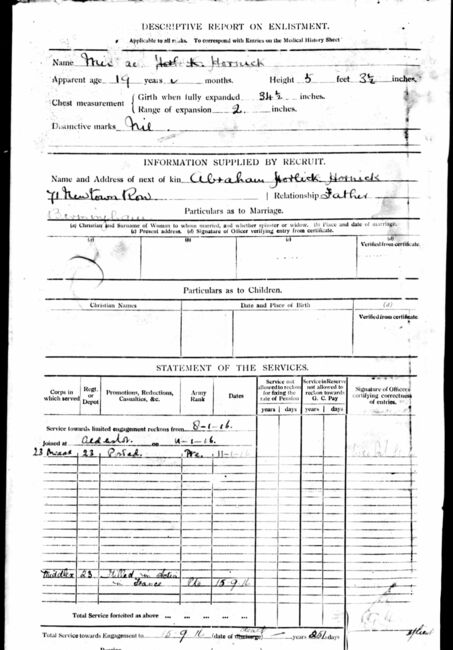 DESCRIPTIVE REPORT ON ENLISTMENT.
Applicable to all ranks. To correspond with Entries on the Medical History Sheet
Name Hornick
Apparent age 19 years months. Height 5 feet 3½ inches.
Chest measurement { Girth when fully expanded 34½ inches.
Range of expansion 2 inches.
Distinctive marks Nil
INFORMATION SUPPLIED BY RECRUIT.
Name and Address of next of kin Abraham Horlick Hornick
71 Newtown Row | Relationship Father
Birmingham
Particulars as to Marriage.
(a) Christian and Surname of Woman to whom married, and whether spinster or widow. (b) Place and date of marriage.
(c) Present address. (d) Signature of Officer verifying entry from certificate.
(a) (b) (c) (d)
Verified from certificate.
Particulars as to Children.
Christian Names Date and Place of Birth (d)
Verified from certificate.
STATEMENT OF THE SERVICES.
Corps in which served Regt. or Depot Promotions, Reductions, Casualties, &c. Army Rank Dates Service not allowed to reckon for fixing the rate of Pension Service in Reserve not allowed to reckon towards G. C. Pay Signature of Officers certifying correctness of entries.
years days years days
Service towards limited engagement reckons from 8-1-16.
Joined at on 11-1-16.
23 23 Posted. Pte. 11-1-16
Middlex 23 Killed in Action in France Pte 15 9 16
Total Service forfeited as above ... ... ... ... ...
Total Service towards Engagement to 15 9 16 (date of discharge) death years days